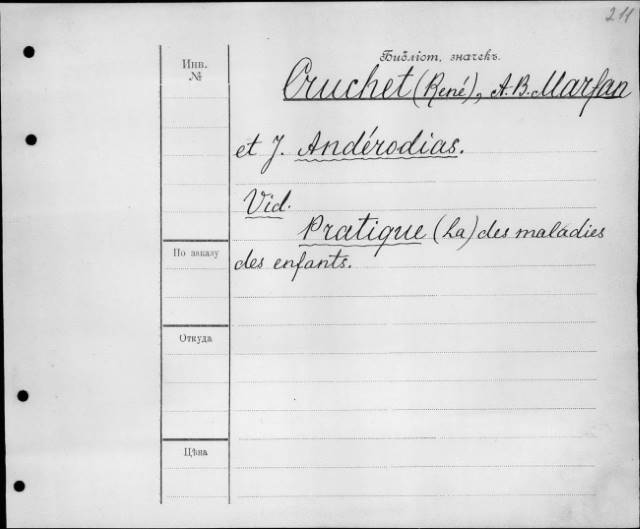 211
Инв.
№
Библіот. значекъ.
Cruchet (René), A. B. Marfan
et J. Andérodias.
Vid.
Pratique (La) des maladies
des enfants.
По заказу
Откуда
Цѣна